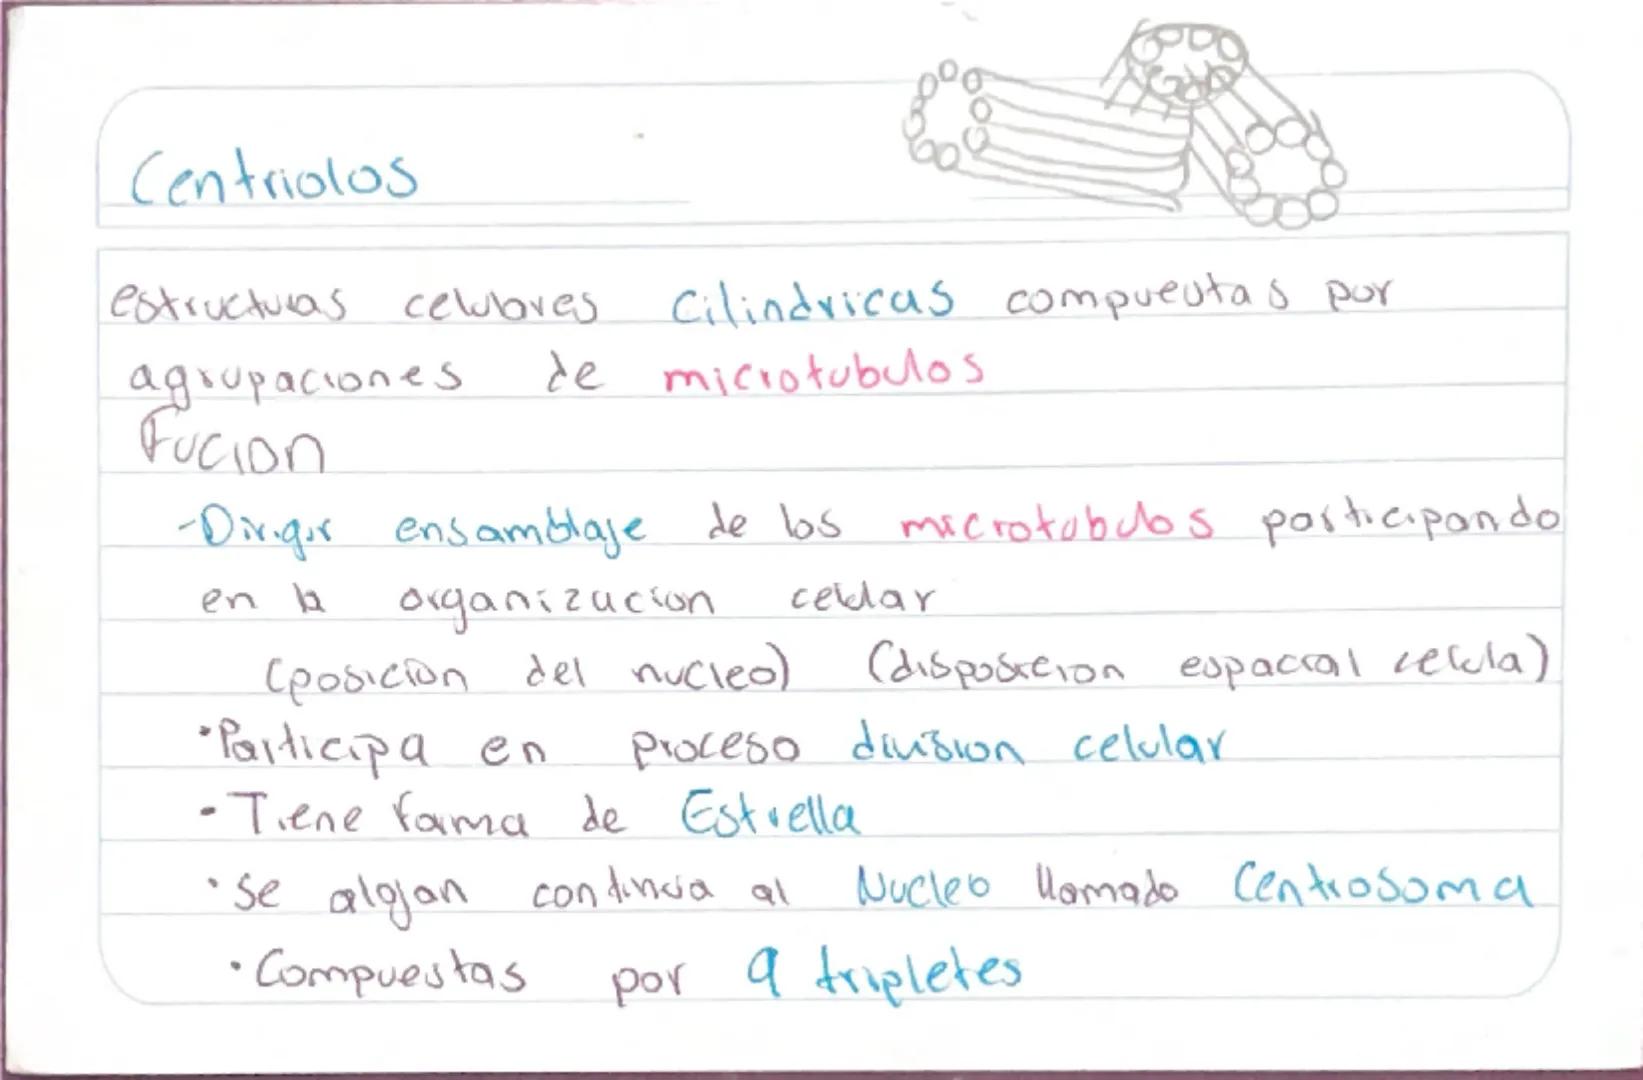 Centriolos
estructuras celulares cilindricas compuestas por
agrupaciones de microtubulos
Fucion
-Dirigir ensamblaje de los microtubulos participando
en la organizacion celular
(posicion del nucleo) (disposicion espacial celula)
·Participa en proceso division celular
- Tiene forma de Estrella
·Se alojan al Nucleo llamado Centrosoma
·Compuestas por 9 tripletes